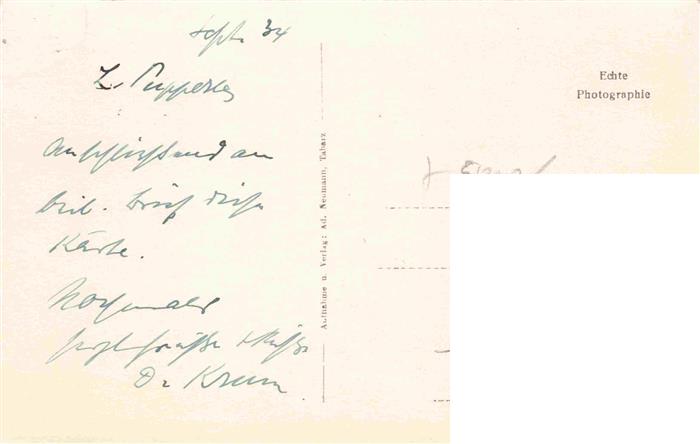 Sept. 34
Anschließend an
beil. Brief diese
Karte.
Nochmals
herzl. Grüße & Küsse
Aufnahme u. Verlag: Ad. Neumann, Tabarz
Echte
Photographie